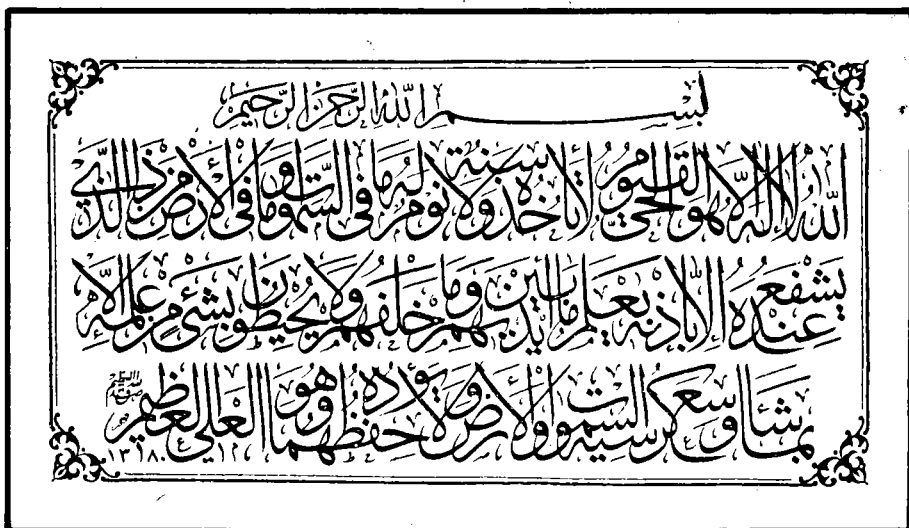 بِسْمِ اللهِ الرَّحْمٰنِ الرَّحِيمِ
اللهُ لَا إِلٰهَ إِلَّا هُوَ الْحَيُّ الْقَيُّومُ لَا تَأْخُذُهُ سِنَةٌ وَلَا نَوْمٌ لَهُ مَا فِي السَّمٰوَاتِ وَمَا فِي الْأَرْضِ مَنْ ذَا الَّذِي
يَشْفَعُ عِنْدَهُ إِلَّا بِإِذْنِهِ يَعْلَمُ مَا بَيْنَ أَيْدِيهِمْ وَمَا خَلْفَهُمْ وَلَا يُحِيطُونَ بِشَيْءٍ مِنْ عِلْمِهِ إِلَّا
بِمَا شَاءَ وَسِعَ كُرْسِيُّهُ السَّمٰوَاتِ وَالْأَرْضَ وَلَا يَؤُدُهُ حِفْظُهُمَا وَهُوَ الْعَلِيُّ الْعَظِيمُ
١٣٨٠